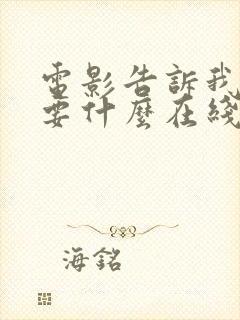 電影告訴我
要什麼在綫
海銘